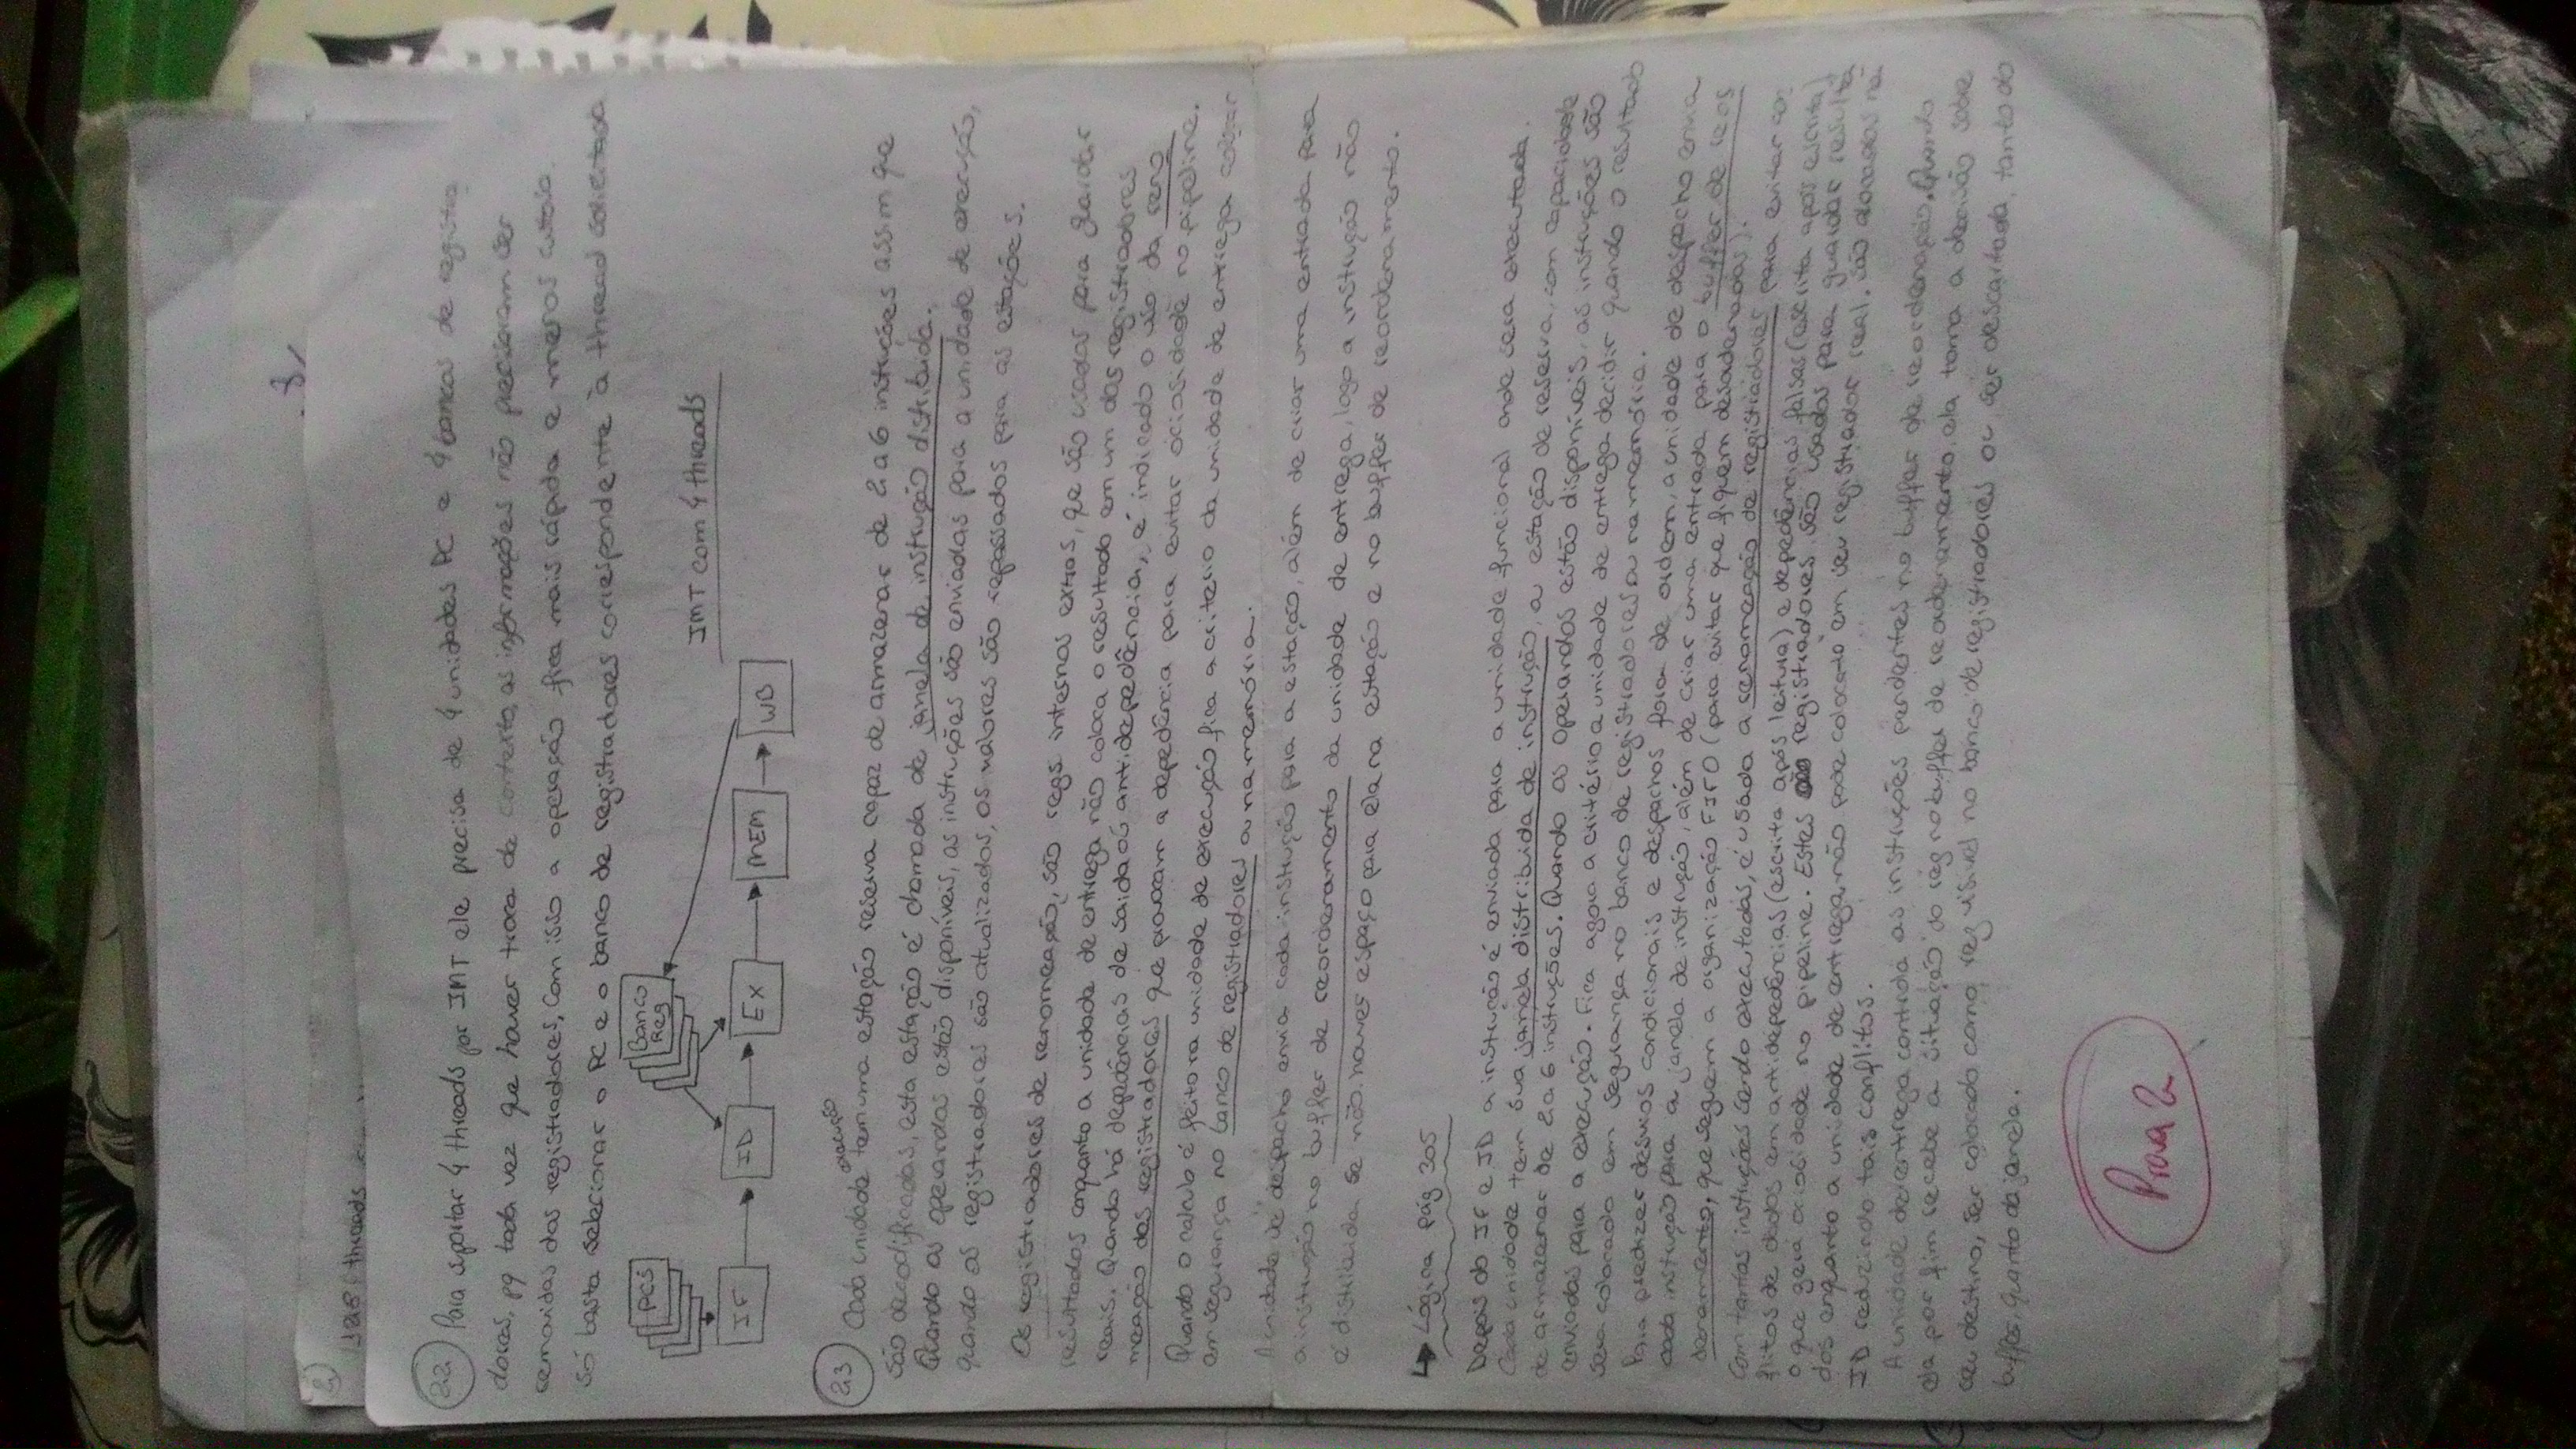 8,
2)
128 threads
2.2) Para suportar 4 threads por IMT ele precisa de 4 unidades PC e 4 bancos de registra
dores, pq toda vez que haver troca de contexto, as informações não precisaram ser
removidas dos registradores, Com isso a operação fica mais rápida e menos custosa.
Só basta selecionar o PC e o banco de registradores correspondente à thread solicitada
PCS
Banco
Reg
IMT com 4 threads
IF
ID
EX
MEM
WB
2.3) Cada unidade execução tem uma estação reserva capaz de armazenar de 2 a 6 instruções assim que
são decodificadas, esta estação é chamada de janela de instrução distribuida.
Quando os operandos estão disponíveis, as instruções são enviadas para a unidade de execução,
quando os registradores são atualizados, os valores são repassados para as estações.
Os registradores de renomeação, são regs internos extras, que são usados para guardar
resultados enquanto a unidade de entrega não coloca o resultado em um dos registradores
reais. Quando há depedências de saida ou antidepedência, é indicado o uso da reno
meação dos registradores que provocam a depedência para evitar ociosidade no pipeline.
Quando o calculo é feito na unidade de execução fica a criterio da unidade de entrega colocar
em segurança no banco de registradores ou na memória.
A unidade de despacho envia cada instrução para a estação, além de criar uma entrada para
a instrução no buffer de reordenamento da unidade de entrega, logo a instrução não
é distribuida se não haver espaço para ela na estação e no buffer de reordenamento.
↳ Lógica pág 305
Depois do IF e ID a instrução é enviada para a unidade funcional onde sera executada.
Cada unidade tem sua janela distribuida de instrução, ou estação de reserva, com capacidade
de armazenar de 2 a 6 instruções. Quando os operandos estão disponíveis, as instruções são
enviadas para a execução. Fica agora a critério a unidade de entrega decidir quando o resultado
sera colocado em segurança no banco de registradores ou na memória.
Para predizer desvios condicionais e despachos fora de ordem, a unidade de despacho envia
cada instrução para a janela de instrução, além de criar uma entrada para o buffer de reor
denamento, que seguem a organização FIFO (para evitar que fiquem desordenadas).
Com tantas instruções sendo executadas, é usada a renomeação de registradores para evitar con
flitos de dados em antidepedências (escrita após leitura) e depedências falsas (escrita após escrita)
o que gera ociosidade no pipeline. Estes registradores são usados para guardar resulta
dos enquanto a unidade de entrega não pode colocalo em seu registrador real. São alocados na
ID reduzindo tais conflitos.
A unidade de entrega controla as instruções pendentes no buffer de reordenação. Quando
ela por fim recebe a situação do reg no buffer de reordenamento, ela toma a decisão sobre
seu destino, ser colocado como reg visível no banco de registradores ou ser descartada, tanto do
buffer, quanto da janela.
Prova 2